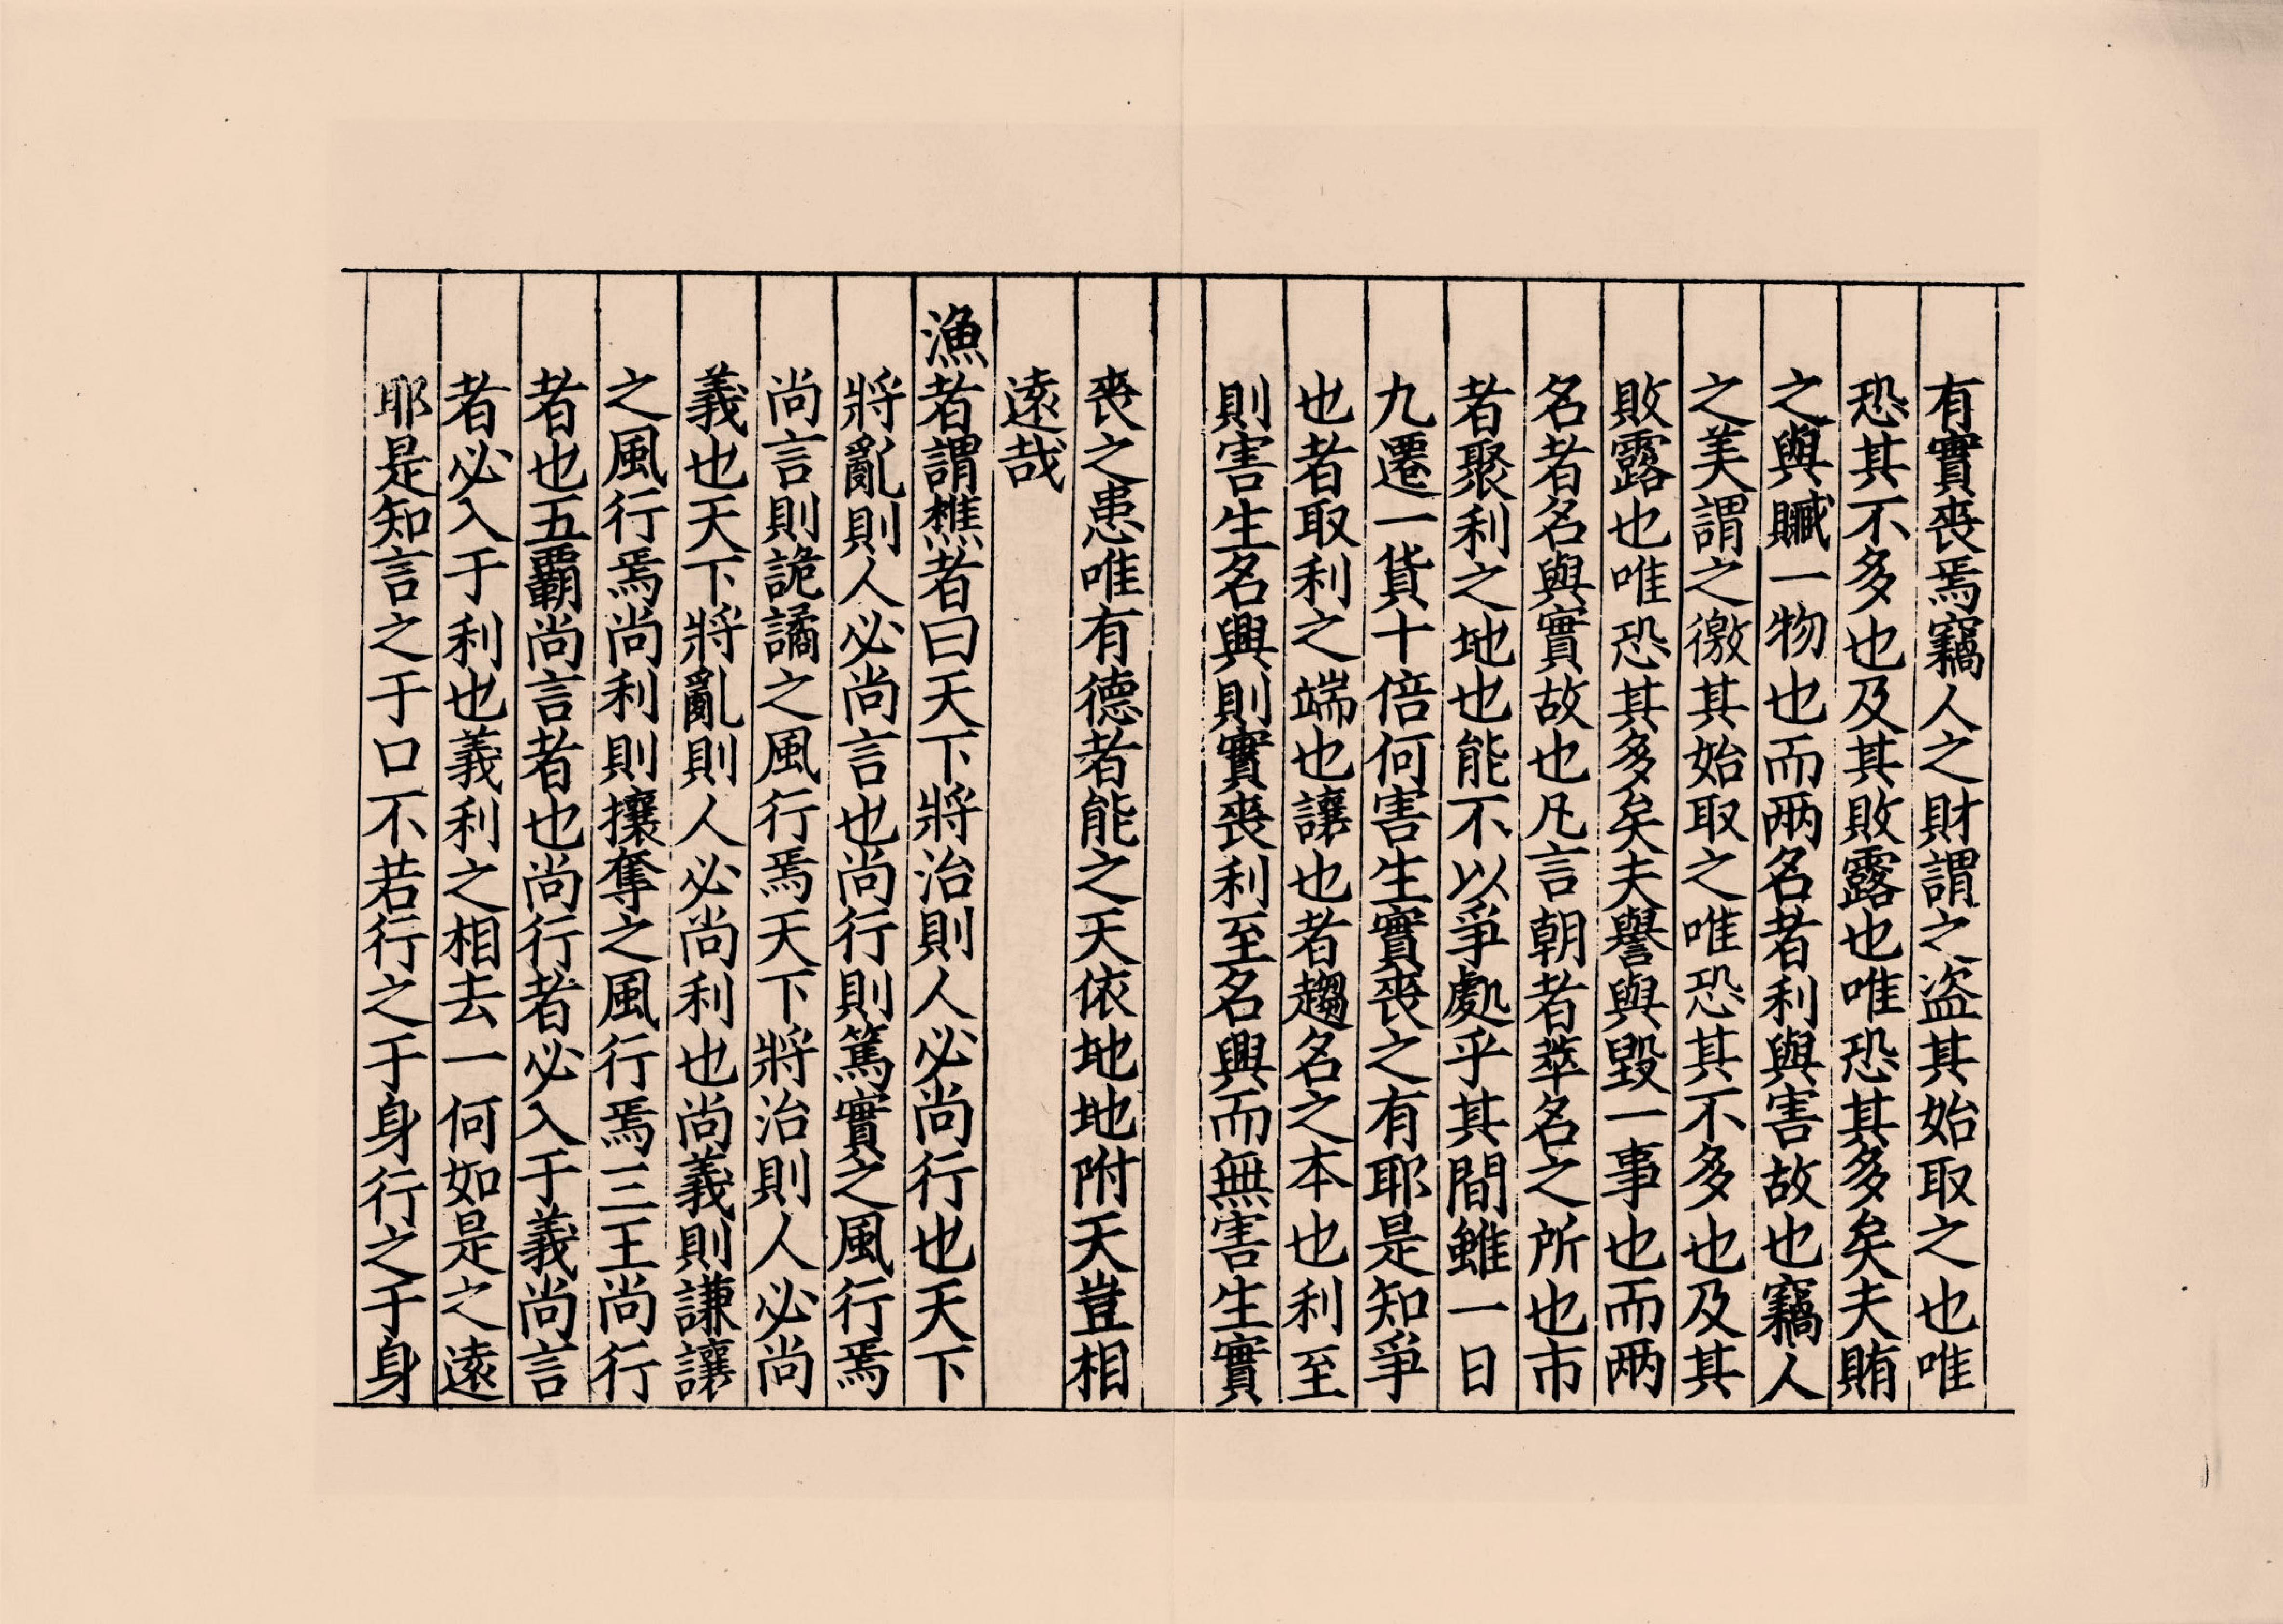 有實喪焉竊人之財謂之盜其始取之也唯
恐其不多也及其敗露也唯恐其多矣夫賄
之與贓一物也而兩名者利與害故也竊人
之美謂之徼其始取之唯恐其不多也及其
敗露也唯恐其多矣夫譽與毀一事也而兩
名者名與實故也凡言朝者萃名之所也市
者聚利之地也能不以爭處乎其間雖一日
九遷一貨十倍何害生實喪之有耶是知爭
也者取利之端也讓也者趨名之本也利至
則害生名興則實喪利至名興而無害生實
喪之患唯有德者能之天依地地附天豈相
遠哉
漁者謂樵者曰天下將治則人必尚行也天下
將亂則人必尚言也尚行則篤實之風行焉
尚言則詭譎之風行焉天下將治則人必尚
義也天下將亂則人必尚利也尚義則謙讓
之風行焉尚利則攘奪之風行焉三王尚行
者也五霸尚言者也尚行者必入于義尚言
者必入于利也義利之相去一何如是之遠
耶是知言之于口不若行之于身行之于身